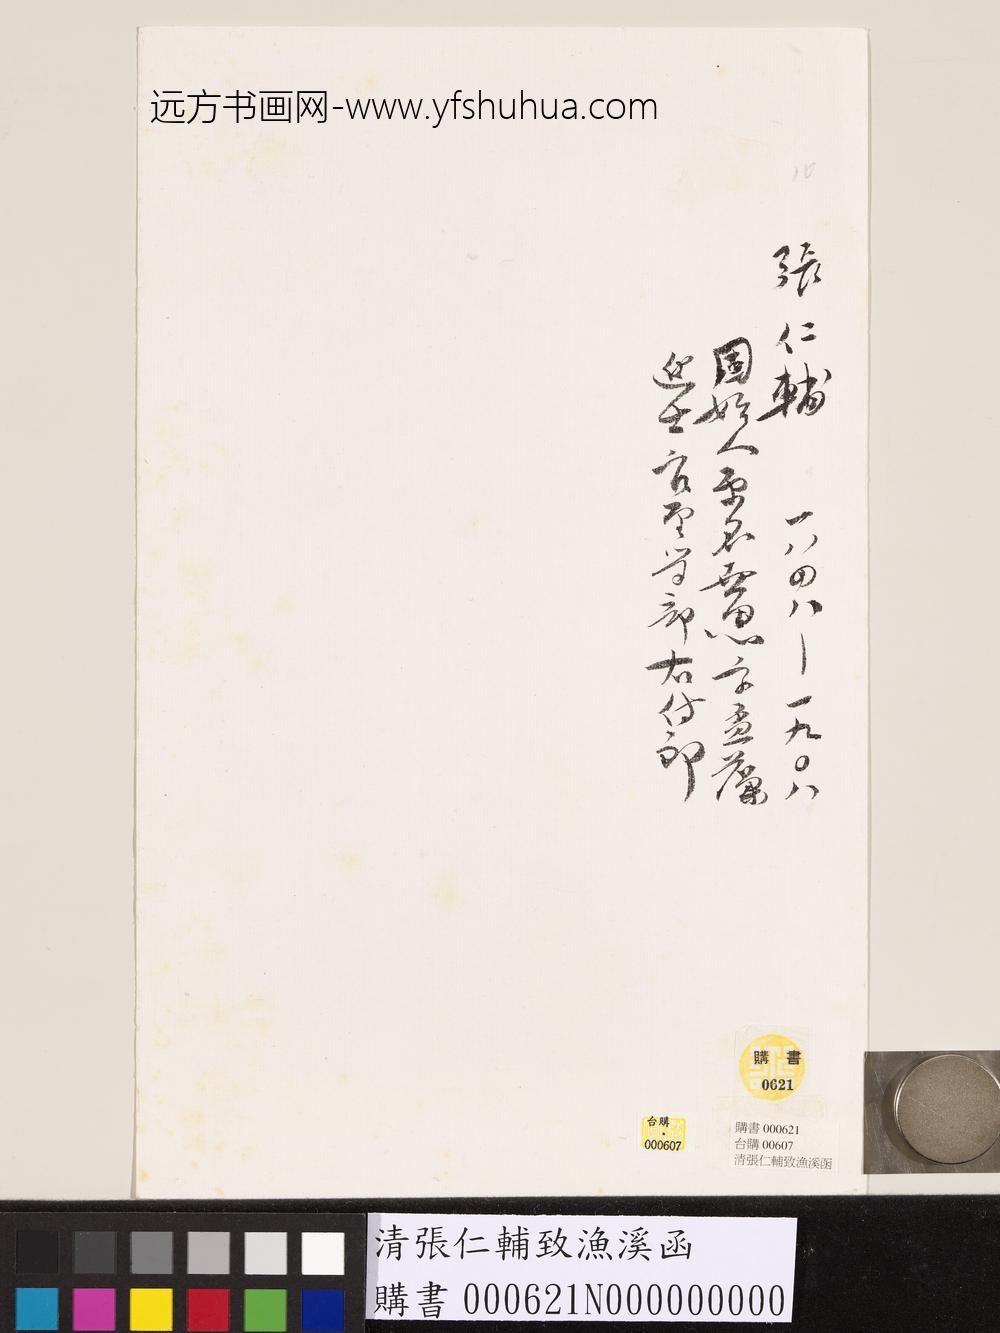 远方书画网-www.yfshuhua.com
10
張仁輔 一八四八—一九〇八
固始人原名世恩字孟藻
進士官至学部右侍郎
購書
0621
台購
000607
購書 000621
台購 00607
清張仁輔致漁溪函
清張仁輔致漁溪函
購書 000621N000000000